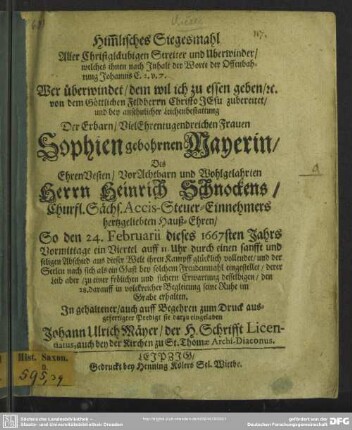 Himlisches Siegesmahl
Aller Christgläubigen Streiter und Uberwinder/
welches ihnen nach Inhalt der Worte der Offenbah-
rung Johannis C. 2. v. 7.
Wer überwindet/ dem wil ich zu essen geben/ꝛc.
von dem Göttlichen Feldherrn Christo JEsu zubereitet/
und bey ansehnlicher Leichenbestattung
Der Erbarn/ VielEhrentugendreichen Frauen
Sophien gebohrnen Mayerin/
Des
EhrenVesten/ VorAchtbarn und Wohlgelahrten
Herrn Heinrich Schnockens/
Churfl. Sächs. Accis-Steuer-Einnehmers
hertzgeliebten Hauß-Ehren/
So den 24. Februarii dieses 1667sten Jahrs
Vormittage ein Viertel auff 11 Uhr durch einen sanfft und
seligen Abschied aus dieser Welt ihren Kampff glücklich vollendet/ und der
Seelen nach sich als ein Gast bey solchem Freudenmahl eingestellet/ derer
Leib aber zu einer frölichen und sichern Erwartung desselbigen/ den
28. darauff in volckreicher Begleitung seine Ruhe im
Grabe erhalten,
In gehaltener/ auch auff Begehren zum Druck aus-
gefertigter Predigt sie darzu eingeladen
Johann Ulrich Mayer/ der H. Schrifft Licen-
tiatus, auch bey der Kirchen zu St. Thomæ Archi-Diaconus.
LEIPZIG/
Gedruckt bey Henning Kölers Sel. Wittbe.
Hist. Saxon.
595,29
Sächsische Landesbibliothek -
Staats- und Universitätsbibliothek Dresden
gefördert von der
Deutschen Forschungsgemeinschaft